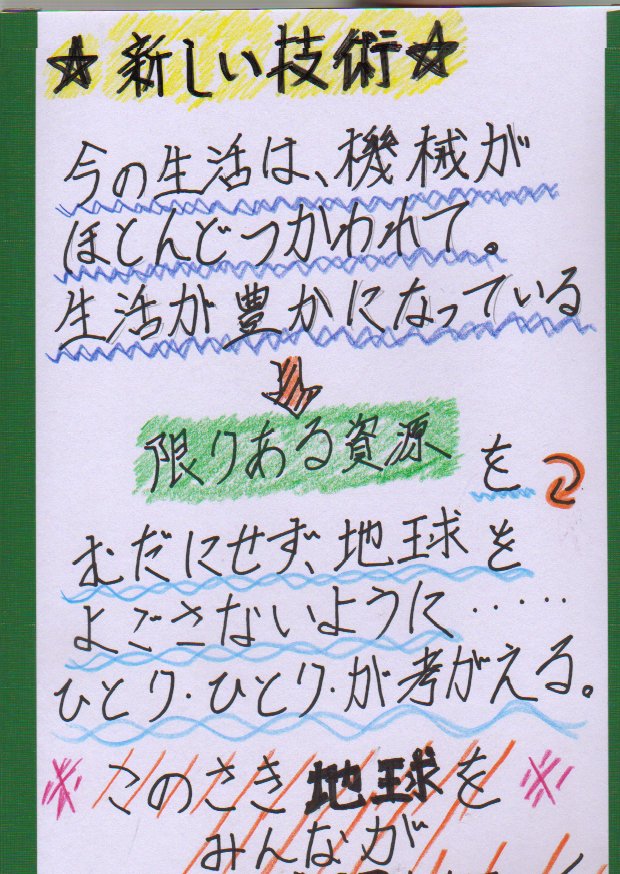 ☆新しい技術☆
今の生活は、機械が
ほとんどつかわれて。
生活が豊かになっている
限りある資源を
むだにせず、地球を
よごさないように……
ひとり・ひとり・が考がえる。
※このさき地球を※
みんなが